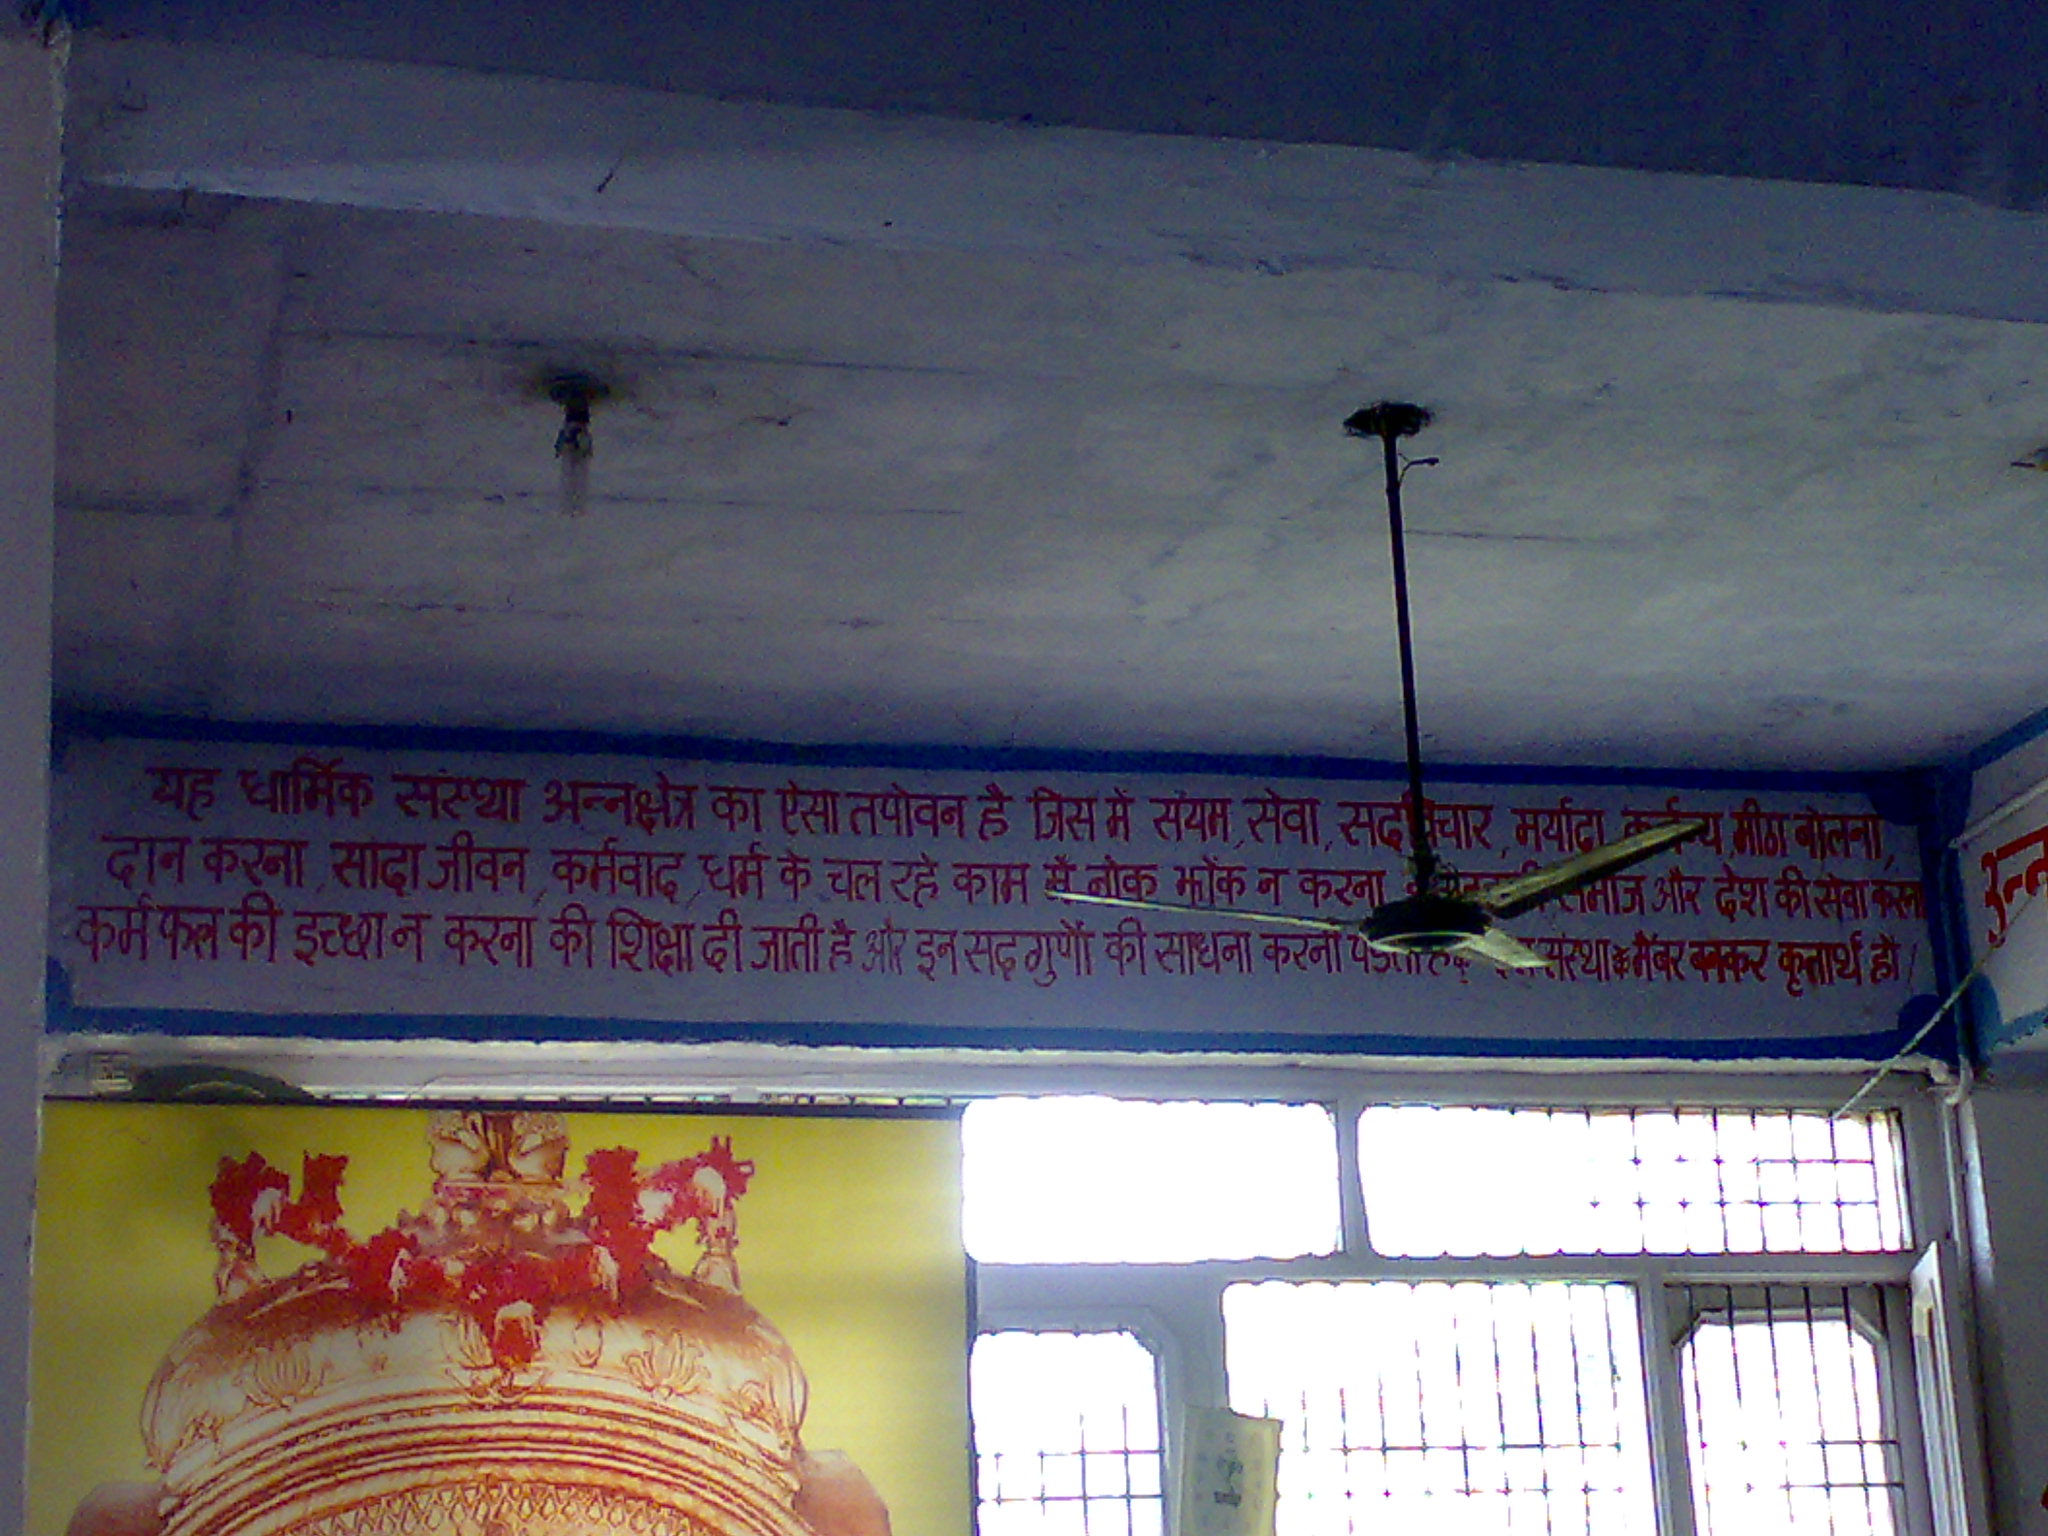 यह धार्मिक संस्था अन्नक्षेत्र का ऐसा तपोवन है जिस में संयम, सेवा, सदविचार, मर्यादा, कर्तव्य, मीठा बोलना,
दान करना, सादा जीवन, कर्मवाद, धर्म के चल रहे काम में नोक झोंक न करना, समाज और देश की सेवा करना
कर्म फल की इच्छा न करना की शिक्षा दी जाती है और इन सद गुणों की साधना करनी पडती है संस्था के मैंबर बनकर कृतार्थ हों।
अन्न